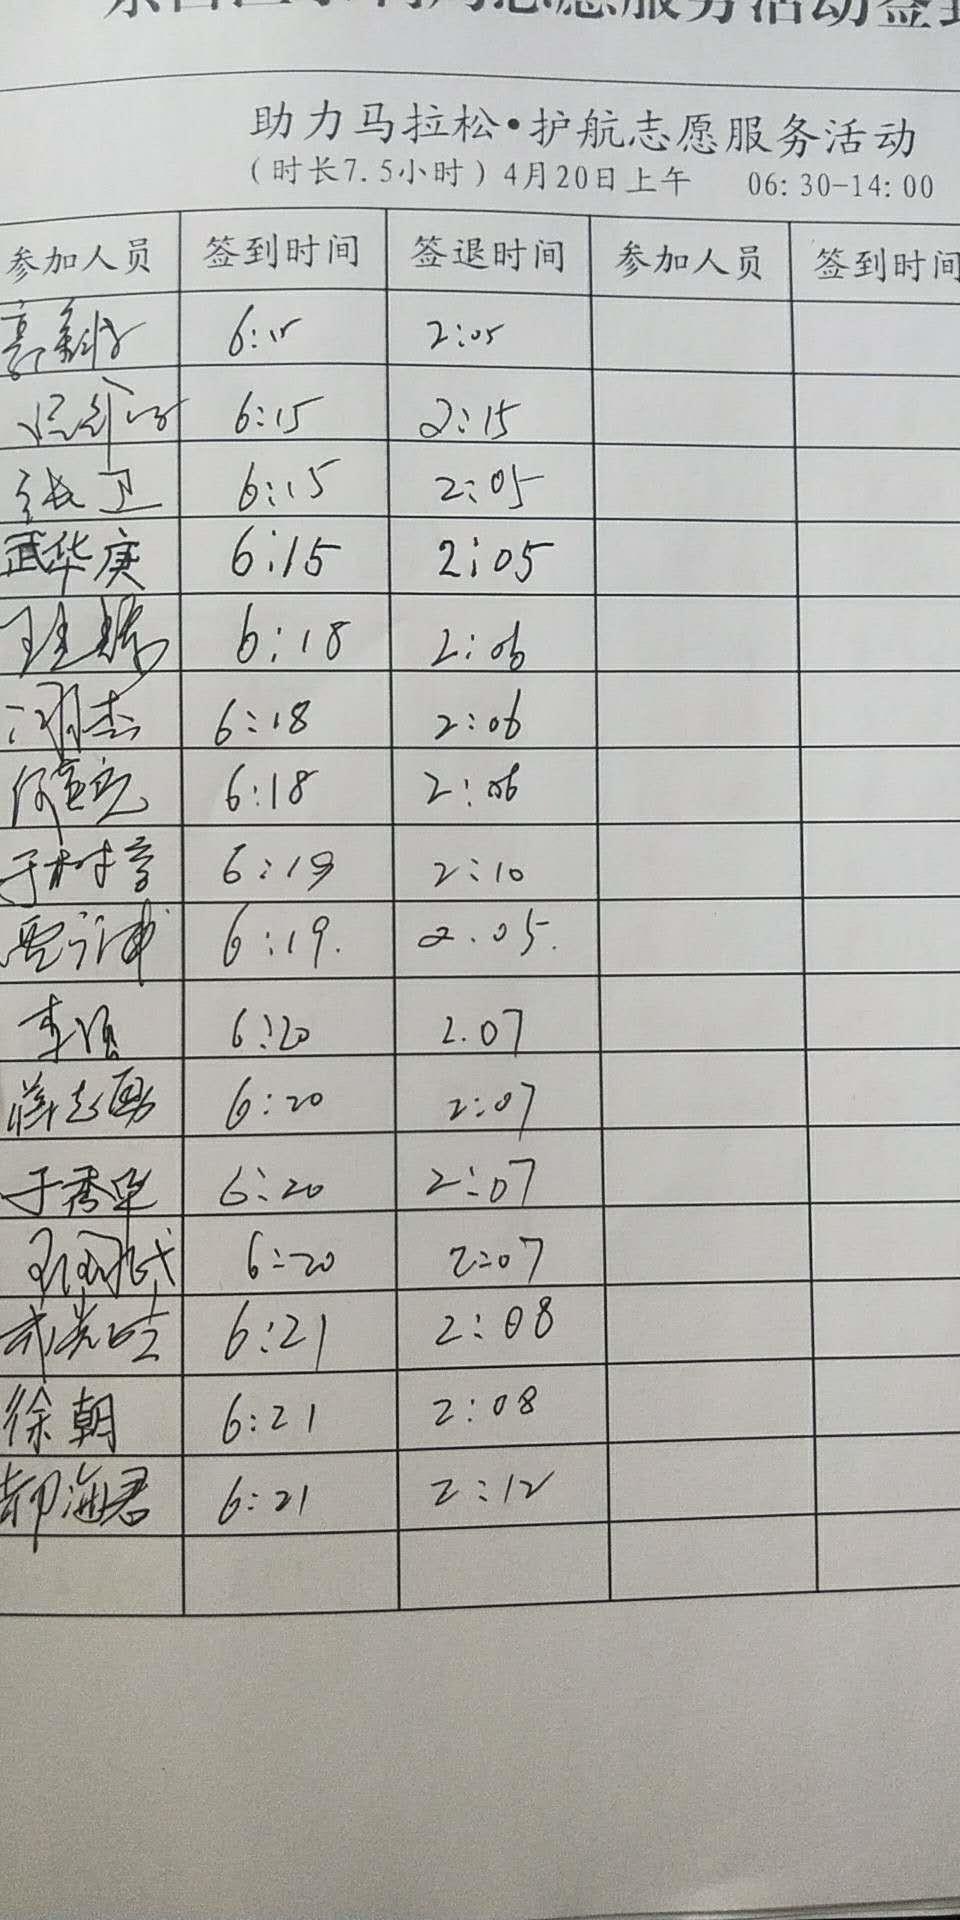 志愿服务活动签到
助力马拉松•护航志愿服务活动
(时长7.5小时)4月20日上午 06:30-14:00
参加人员 签到时间 签退时间 参加人员 签到时间
6:15 2:05
6:15 2:15
张卫 6:15 2:05
武华庚 6:15 2:05
6:18 2:06
6:18 2:06
6:18 2:06
于树 6:19 2:10
贾 6:19. 2.05.
李 6:20 2.07
蒋志勇 6:20 2:07
于秀 6:20 2:07
6:20 2:07
6:21 2:08
徐朝 6:21 2:08
郝海君 6:21 2:12